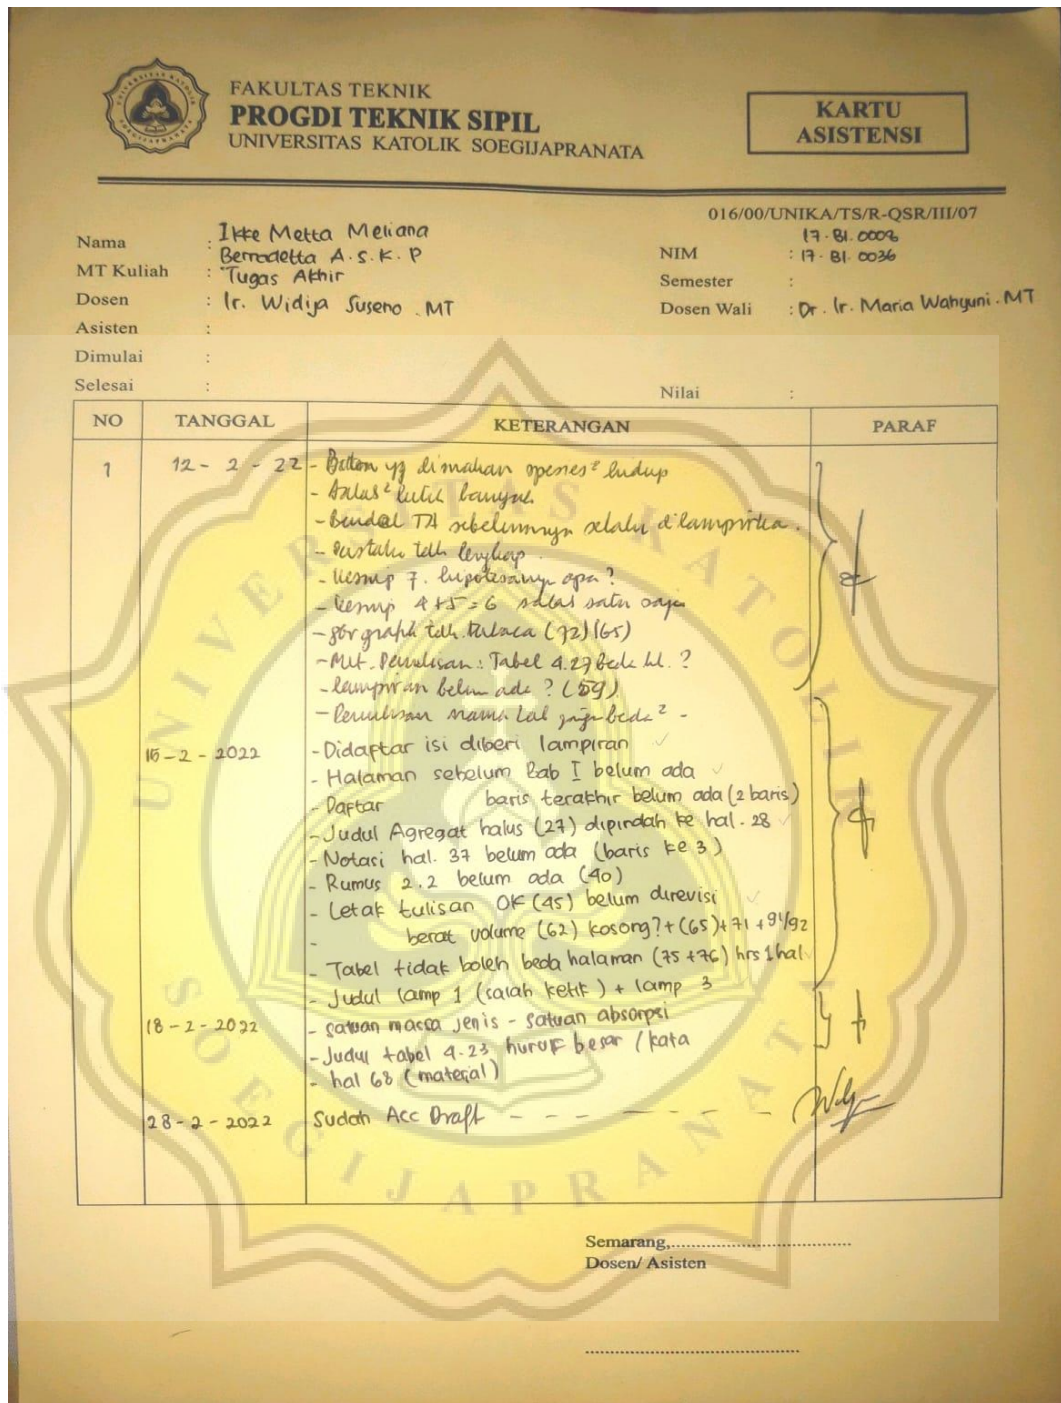 FAKULTAS TEKNIK
PROGDI TEKNIK SIPIL
UNIVERSITAS KATOLIK SOEGIJAPRANATA
KARTU
ASISTENSI
016/00/UNIKA/TS/R-QSR/III/07
Nama : Ikke Metta Meliana
Bernadetta A.S.K.P
MT Kuliah : Tugas Akhir
Dosen : Ir. Widija Suseno .MT
Asisten :
Dimulai :
Selesai :
17.B1.0002
NIM : 17.B1.0036
Semester :
Dosen Wali : Dr. Ir. Maria Wahyuni.MT
Nilai :
NO TANGGAL KETERANGAN PARAF
1 12-2-22 - yg dimakan hidup
- banyak
- TA sebelumnya selalu dilampirka.
- Pustaka lengkap.
- 7. apa?
- 4+5=6 salah satu saja
- graph (72)(65)
- Penulisan: Tabel 4.27 hl.?
- lampiran belum ada? (59)
- Penulisan nama beda² -
15-2-2022 - Didaptar isi diberi lampiran
- Halaman sebelum Bab I belum ada
- Daptar baris terakhir belum ada (2 baris)
- Judul Agregat halus (27) dipindah ke hal. 28
- Notasi hal. 37 belum ada (baris ke 3)
- Rumus 2.2 belum ada (40)
- Letak tulisan OK (45) belum direvisi
- berat volume (62) kosong?+(65)+71+91/92
- Tabel tidak boleh beda halaman (75+76) hrs 1 hal
- Judul lamp 1 (salah ketik) + lamp 3
18-2-2022 - satuan massa jenis - satuan absorpsi
- Judul tabel 4.23 huruf besar / kata
- hal 68 (material)
28-2-2022 Sudah Acc Draft - - - - - - -
Semarang,
Dosen/ Asisten
UNIVERSITAS KATOLIK
SOEGIJAPRANATA